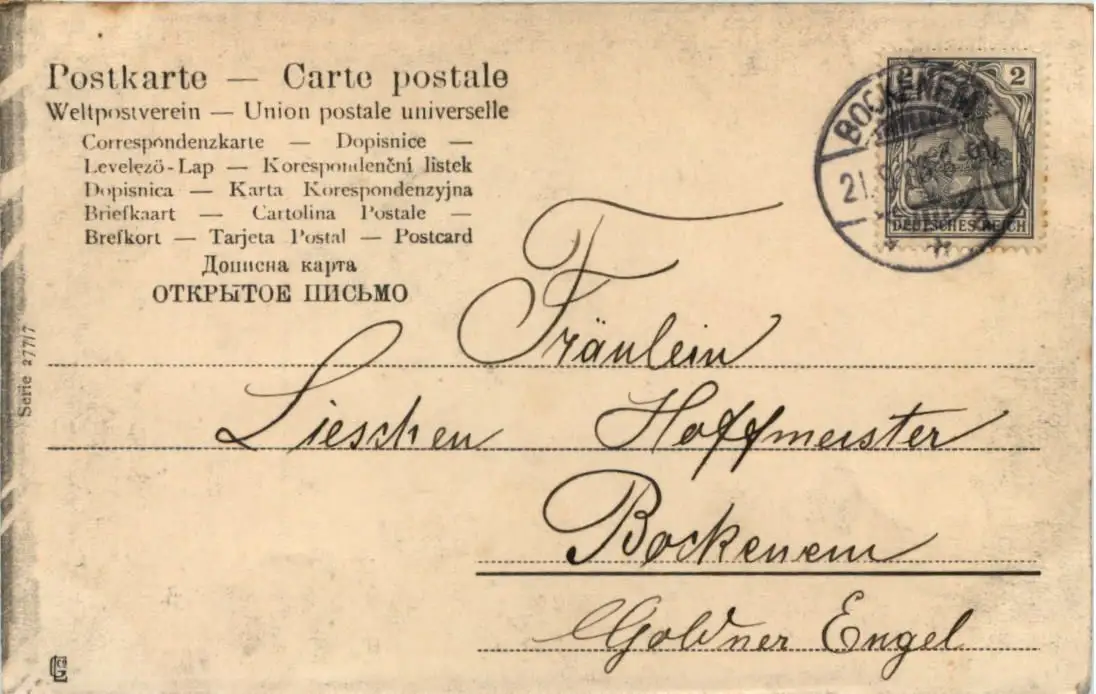 Postkarte — Carte postale
Weltpostverein — Union postale universelle
Correspondenzkarte — Dopisnice —
Levelező-Lap — Korespondenční listek
Dopisnica — Karta Korespondenzyjna
Briefkaart — Cartolina Postale —
Brefkort — Tarjeta Postal — Postcard
Дописна карта
ОТКРЫТОЕ ПИСЬМО
2 2
BOCKENEM
21.
DEUTSCHES REICH
Fräulein
Lieschen Hoffmeister
Bockenem
Goldner Engel
Serie 277/7